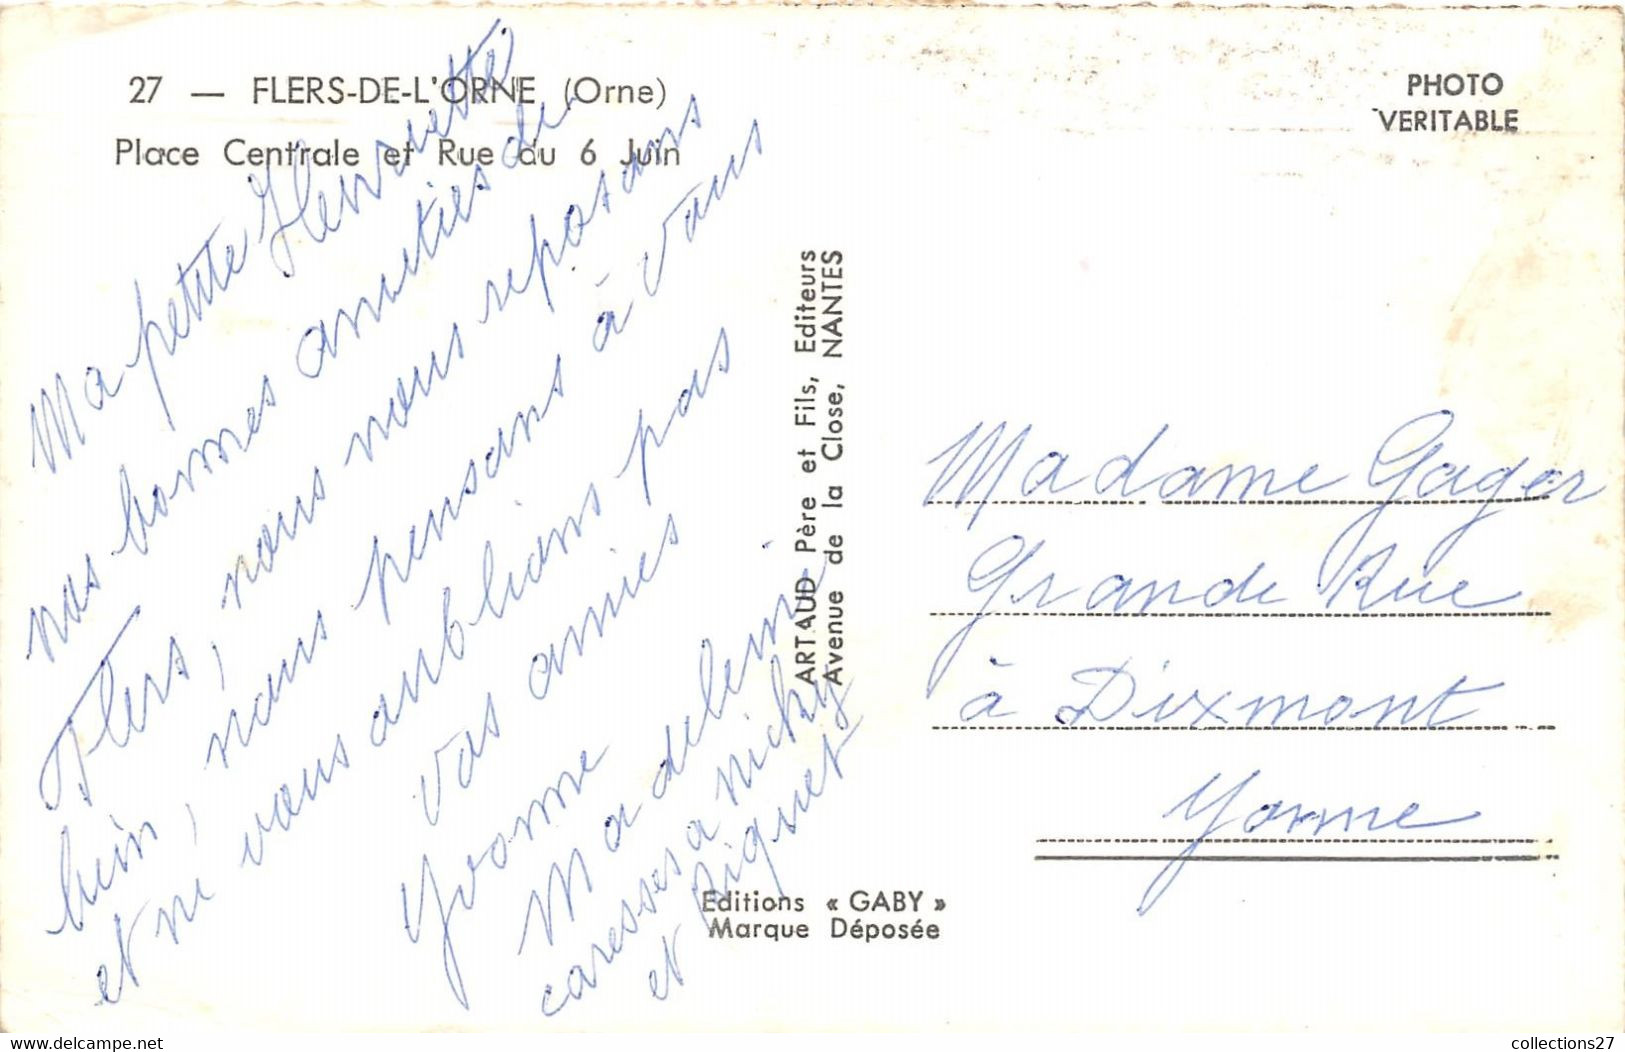 27 — FLERS-DE-L'ORNE (Orne)
Place Centrale et Rue du 6 Juin
PHOTO
VERITABLE
Ma petite Henriette
nos bonnes amitiés de
Flers, nous nous reposons
bien, nous pensons à vous
et ne vous oublions pas
vos amies
Yvonne
Madeleine
caresses a Nicky
et Piquet
ARTAUD Père et Fils, Editeurs
Avenue de la Close, NANTES
Editions « GABY »
Marque Déposée
Madame Gager
Grande Rue
à Dixmont
Yonne
www.mes-cartes.net
collections27